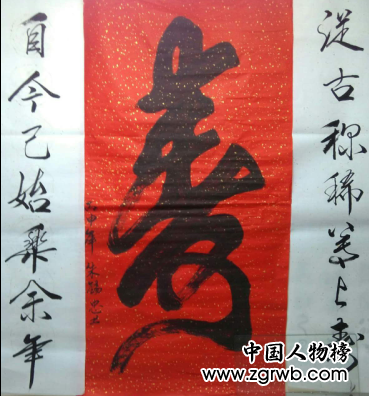 從古稱稀尊上壽
壽
丙申年
自今已始樂余年
中国人物榜
www.zgrwb.com